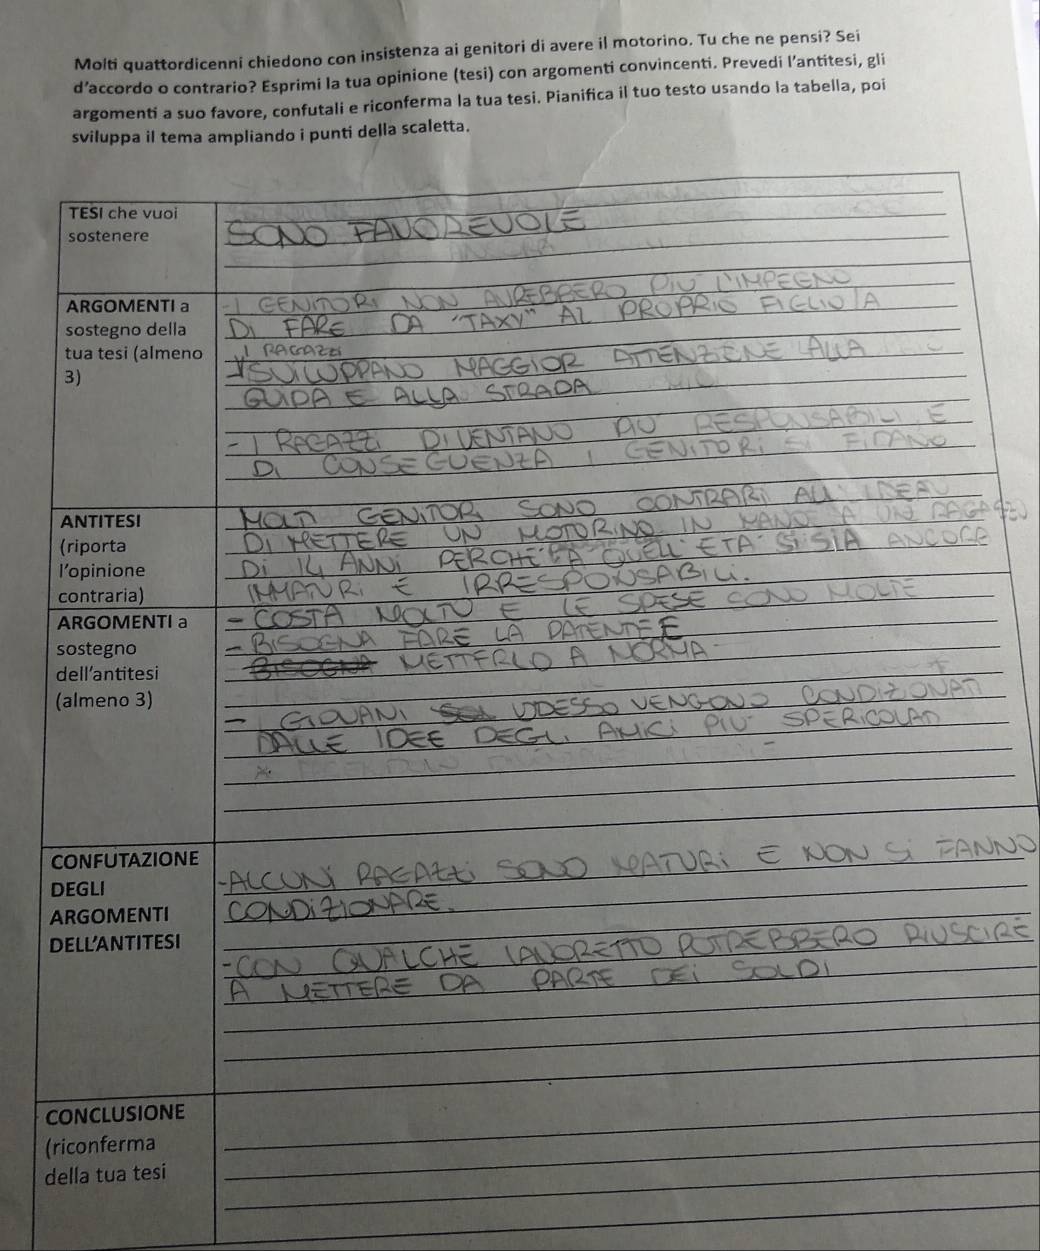 Molti quattordicenni chiedono con insistenza ai genitori di avere il motorino. Tu che ne pensi? Sei
d'accordo o contrario? Esprimi la tua opinione (tesi) con argomenti convincenti. Prevedi l'antitesi, gli
argomenti a suo favore, confutali e riconferma la tua tesi. Pianifica il tuo testo usando la tabella, poi
sviluppa il tema ampliando i punti della scaletta.
TESI che vuoi
sostenere
SONO FAVOREVOLE
ARGOMENTI a
sostegno della
tua tesi (almeno
3)
- I GENITORI NON AVREBBERO PIÙ L'IMPEGNO
DI FARE DA "TAXY" AL PROPRIO FIGLIO/A
- I RAGAZZI
SVILUPPANO MAGGIOR ATTENZIONE ALLA
GUIDA E ALLA STRADA
- I RAGAZZI DIVENTANO PIÙ RESPONSABILI E
DI CONSEGUENZA I GENITORI SI FIDANO
ANTITESI
(riporta
l'opinione
contraria)
MOLTI GENITORI SONO CONTRARI ALL'IDEA
DI METTERE UN MOTORINO IN MANO A UN RAGAZZO
DI 14 ANNI PERCHÈ A QUELL'ETÀ SI SIA ANCORA
IMMATURI E IRRESPONSABILI.
ARGOMENTI a
sostegno
dell'antitesi
(almeno 3)
- COSTA MOLTO E LE SPESE SONO MOLTE
- BISOGNA FARE LA PATENTE E
METTERLO A NORMA
- I GIOVANI ADESSO VENGONO CONDIZIONATI
DALLE IDEE DEGLI AMICI PIÙ SPERICOLATI
CONFUTAZIONE
DEGLI
ARGOMENTI
DELL'ANTITESI
- ALCUNI RAGAZZI SONO MATURI E NON SI FANNO
CONDIZIONARE.
- CON QUALCHE LAVORETTO POTREBBERO RIUSCIRE
A METTERE DA PARTE DEI SOLDI
CONCLUSIONE
(riconferma
della tua tesi